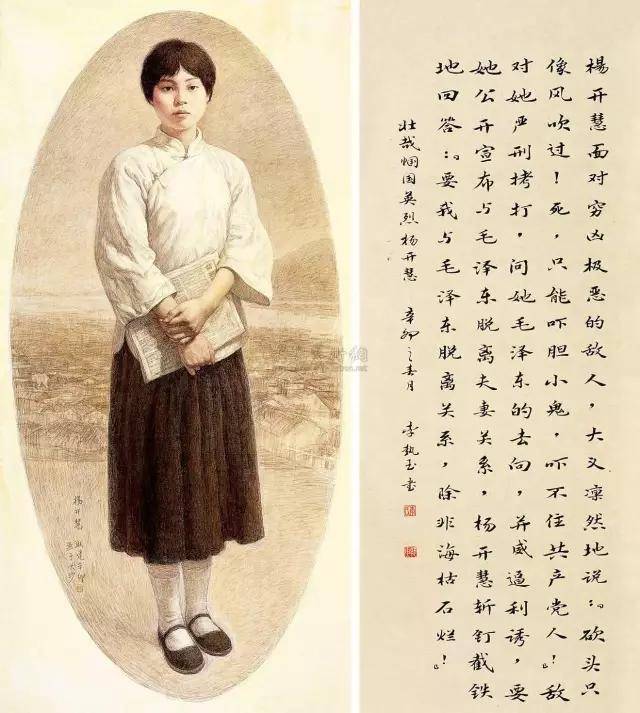 楊开慧面对穷凶极恶的敌人，大义凛然地说：『砍头只
像风吹过！死，只能吓胆小鬼，吓不住共产党人！』敌
对她严刑拷打，问她毛泽东的去向，并威逼利诱，要
她公开宣布与毛泽东脱离夫妻关系，杨开慧斩钉截铁
地回答：『要我与毛泽东脱离关系，除非海枯石烂！』
壮哉 国英烈杨开慧 辛卯之春月 李执玉书
楊开慧